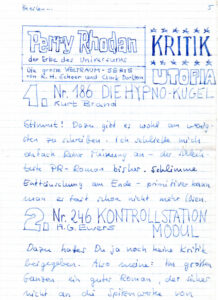 5
Perry Rhodan
der Erbe des Universums
Die große WELTRAUM-SERIE
von K.H. Scheer und Clark Darlton
KRITIK
UTOPIA
1. Nr. 186 DIE HYPNO-KUGEL
Kurt Brand
Stimmt! Dazu gibt es wohl am wenigsten
zu schreiben. Ich schließe mich
einfach Deiner Meinung an - der schlechteste
PR-Roman bisher. Schlimme
Enttäuschung am Ende - primitiver kann
man es fast schon nicht mehr lösen.
2. Nr. 246 KONTROLLSTATION
MODUL
H.G. Ewers
Dazu hatte Du ja noch keine Kritik
beigegeben. Also meine: Im großen
Ganzen ein guter Roman, der sicher
nicht an die Spitzenwerke von